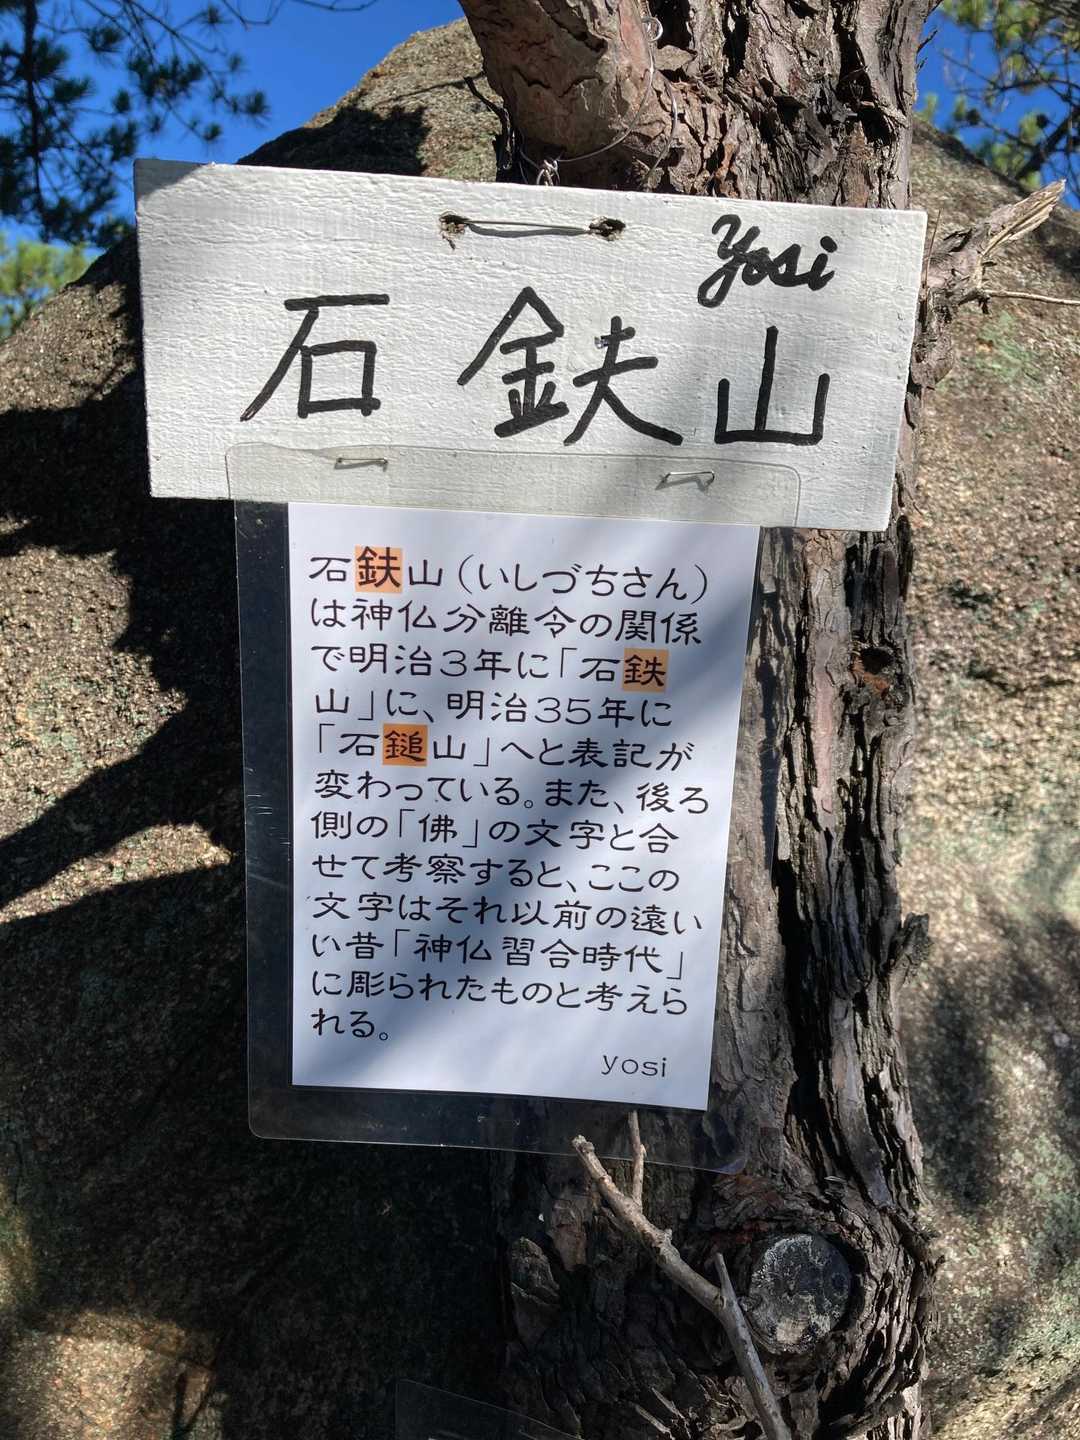 Yosi
石鈇山
石鈇山(いしづちさん)
は神仏分離令の関係
で明治3年に「石鉄
山」に、明治35年に
「石鎚山」へと表記が
変わっている。また、後ろ
側の「佛」の文字と合
せて考察すると、ここの
文字はそれ以前の遠い
い昔「神仏習合時代」
に彫られたものと考えら
れる。
yosi